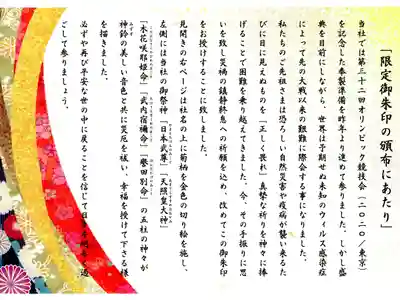 「限定御朱印の頒布にあたり」
当社では第三十二回オリンピック競技会（二〇二〇／東京）
を記念した奉製準備を昨年より進めて参りました。しかし盛
典を目前にしながら、世界は予期せぬ未知のウィルス感染症
によって先の大戦以来の艱難に際会する事になりました。
私たちのご先祖さまは恐ろしい自然災害や疫病が襲い来るた
びに目に見えぬものを「正しく畏れ」真摯な祈りを神々に捧
げることで困難を乗り越えてきました。今、その手振りに思
いを致し災禍の鎮静終息への祈願を込め、改めてこの御朱印
をお授けすることに致しました。
見開きの右ページは社名の上に菊柄を金色の切り絵を施し、
左側には当社の御祭神「日本武尊」「天照皇大神」
「木花咲耶姫命」「武内宿禰命」「譽田別命」の五社の神々が
神鈴の美しい音色と共に災厄を祓い、幸福を授けて下さる様
を描きました。
必ずや再び平安な世の中に戻ることを信じて日
ごして参りましょう。